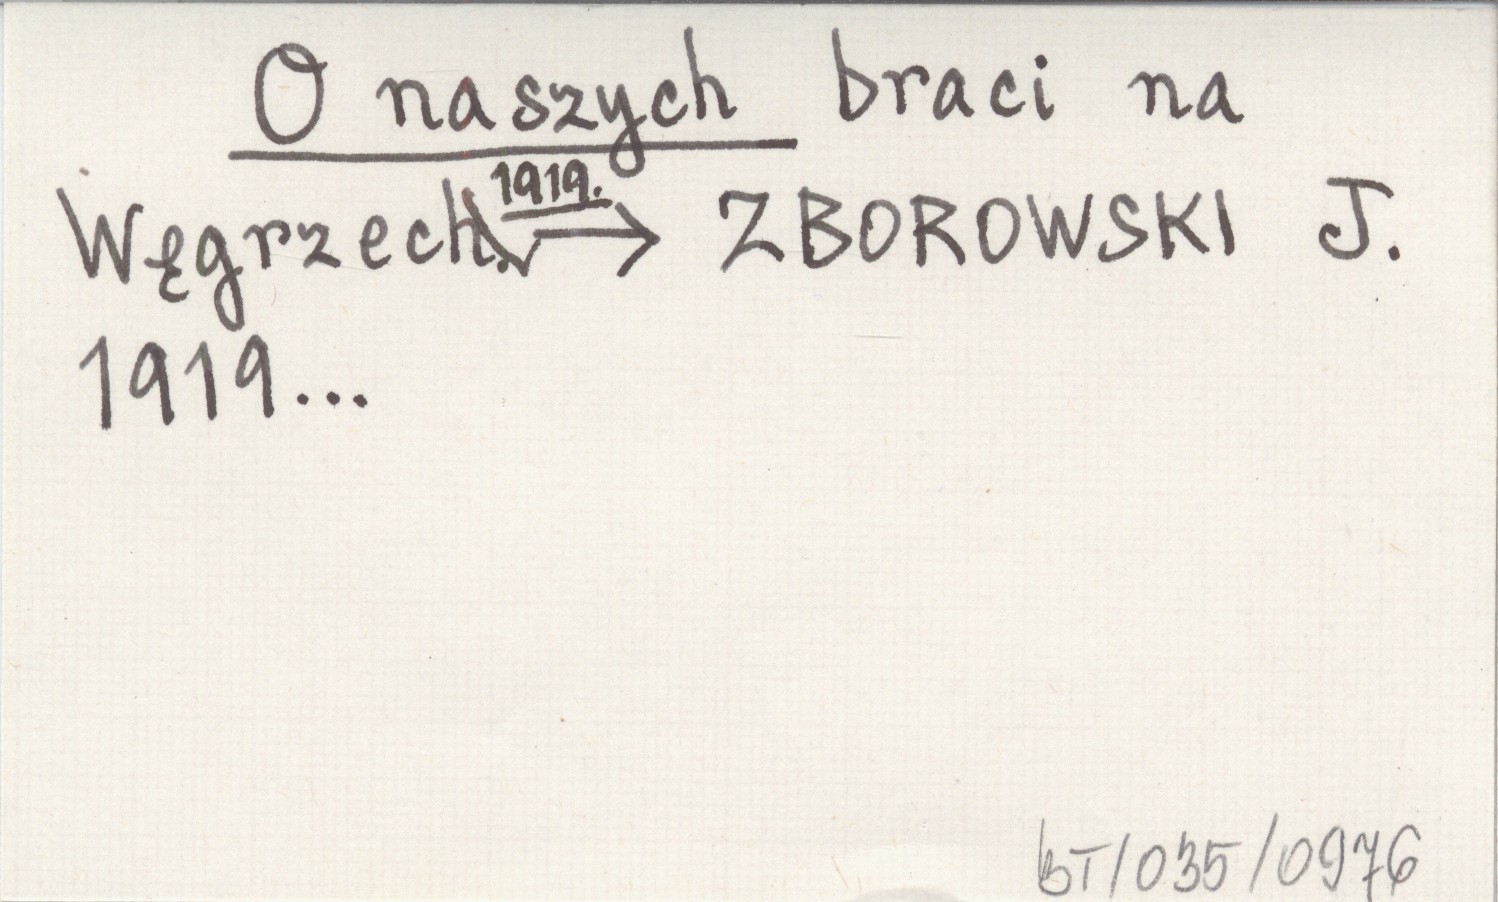 O naszych braci na
Węgrzech. 1919. → ZBOROWSKI J.
1919...
BT/035/0976